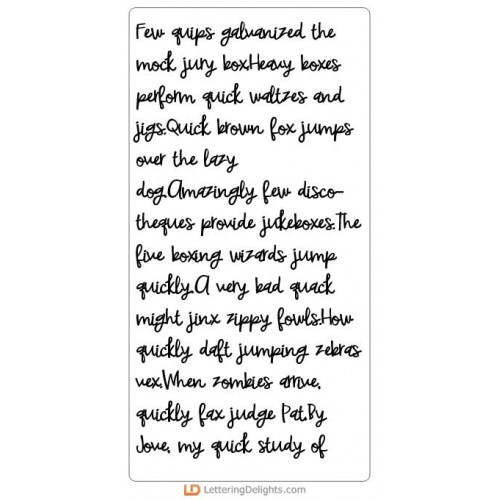 Few quips galvanized the
mock jury box.Heavy boxes
perform quick waltzes and
jigs.Quick brown fox jumps
over the lazy
dog.Amazingly few disco-
theques provide jukeboxes.The
five boxing wizards jump
quickly.A very bad quack
might jinx zippy fowls.How
quickly daft jumping zebras
vex.When zombies arrive,
quickly fax judge Pat.By
Jove, my quick study of
LD LetteringDelights.com